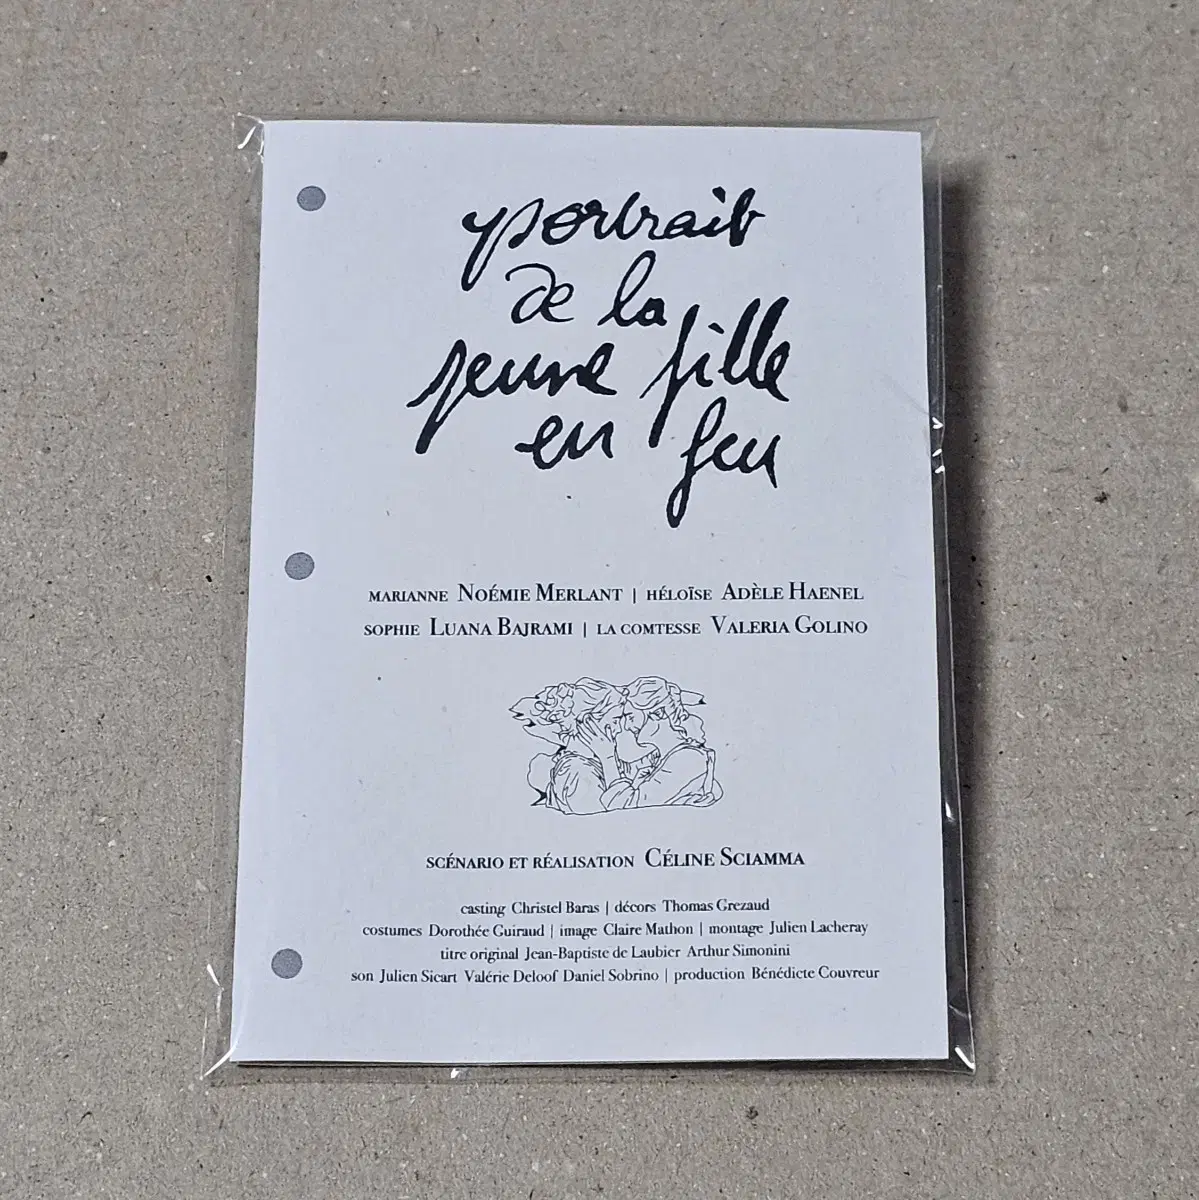 portrait
de la
jeune fille
en feu
MARIANNE NOÉMIE MERLANT | HÉLOÏSE ADÈLE HAENEL
SOPHIE LUANA BAJRAMI | LA COMTESSE VALERIA GOLINO
SCÉNARIO ET RÉALISATION CÉLINE SCIAMMA
casting Christel Baras | décors Thomas Grezaud
costumes Dorothée Guiraud | image Claire Mathon | montage Julien Lacheray
titre original Jean-Baptiste de Laubier Arthur Simonini
son Julien Sicart Valérie Deloof Daniel Sobrino | production Bénédicte Couvreur